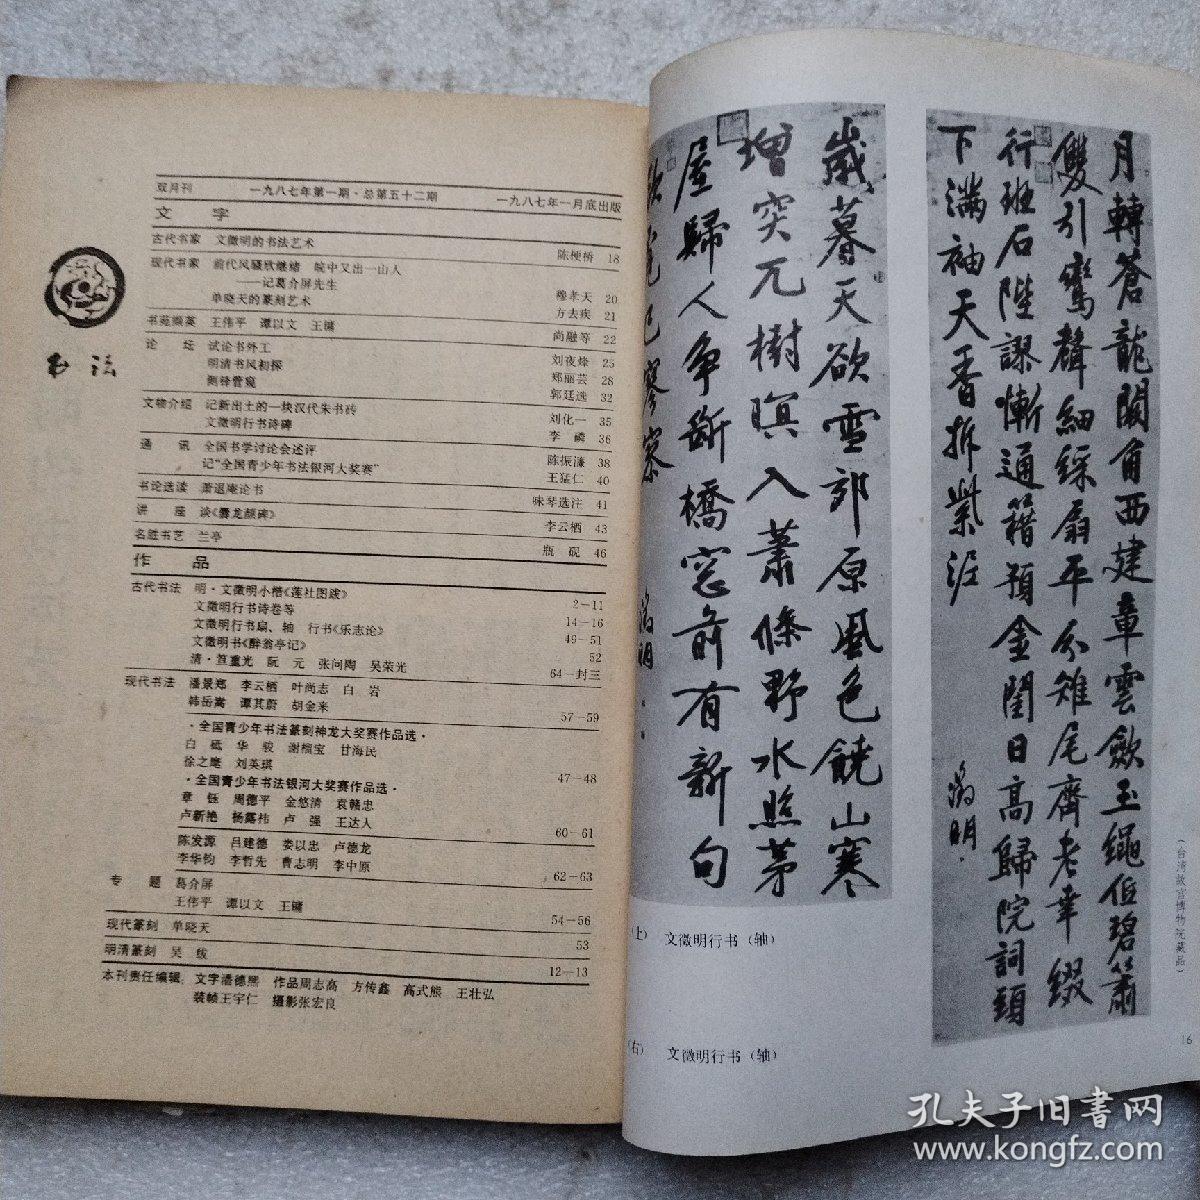 双月刊 一九八七年第一期·总第五十二期 一九八七年一月底出版
文 字
古代书家 文徵明的书法艺术 陈梗桥 18
现代书家 前代风骚欣继绪 皖中又出一山人
——记葛介屏先生 穆孝天 20
单晓天的篆刻艺术 方去疾 21
书苑撷英 王伟平 谭以文 王镛 尚融等 22
论 坛 试论书外工 刘夜烽 25
明清书风初探 郑丽芸 28
侧锋管窥 郭廷选 32
文物介绍 记新出土的一块汉代朱书砖 刘化一 35
文徵明行书诗碑 李 嶙 36
通 讯 全国书学讨论会述评 陈振濂 38
记“全国青少年书法银河大奖赛” 王猛仁 40
书论选读 萧退庵论书 味琴选注 41
讲 座 谈《爨龙颜碑》 李云栖 43
名胜书艺 兰亭 瓶 砚 46
作 品
古代书法 明·文徵明小楷《莲社图跋》 2—11
文徵明行书诗卷等 14—16
文徵明行书扇、轴 行书《乐志论》 49—51
文徵明书《醉翁亭记》 52
清·笪重光 阮 元 张问陶 吴荣光 64—封三
现代书法 潘景郑 李云栖 叶尚志 白 岩
韩岳嵩 谭其蔚 胡金来 57—59
·全国青少年书法篆刻神龙大奖赛作品选·
白 砥 华 骏 谢颂宝 甘海民
徐之麾 刘英琪 47—48
·全国青少年书法银河大奖赛作品选·
章 钰 周德平 金悠清 袁赣忠
卢新艳 杨露祎 卢 强 王达人 60—61
陈发源 吕建德 娄以忠 卢德龙
李华钧 李哲先 曹志明 李中原 62—63
专 题 葛介屏
王伟平 谭以文 王镛 54—56
现代篆刻 单晓天 53
明清篆刻 吴 䬣 12—13
本刊责任编辑：文字潘德熙 作品周志高 方传鑫 高式熊 王壮弘
装帧王宇仁 摄影张宏良
书法
月轉蒼龍闕角西建章雲斂玉繩低碧簫
雙引鸞聲細綵扇平分雉尾齊老幸綴
行班石陛謬慚通籍預金閨日高歸院詞頭
下滿袖天香拆紫泥
徵明
歲暮天欲雪郊原風色饒山寒
增突兀樹暝入蕭條野水照茅
屋歸人爭斷橋窓前有新句
（上） 文徵明行书（轴）
（右） 文徵明行书（轴）
（台湾故宫博物院藏品）
16
孔夫子旧书网
www.kongfz.com